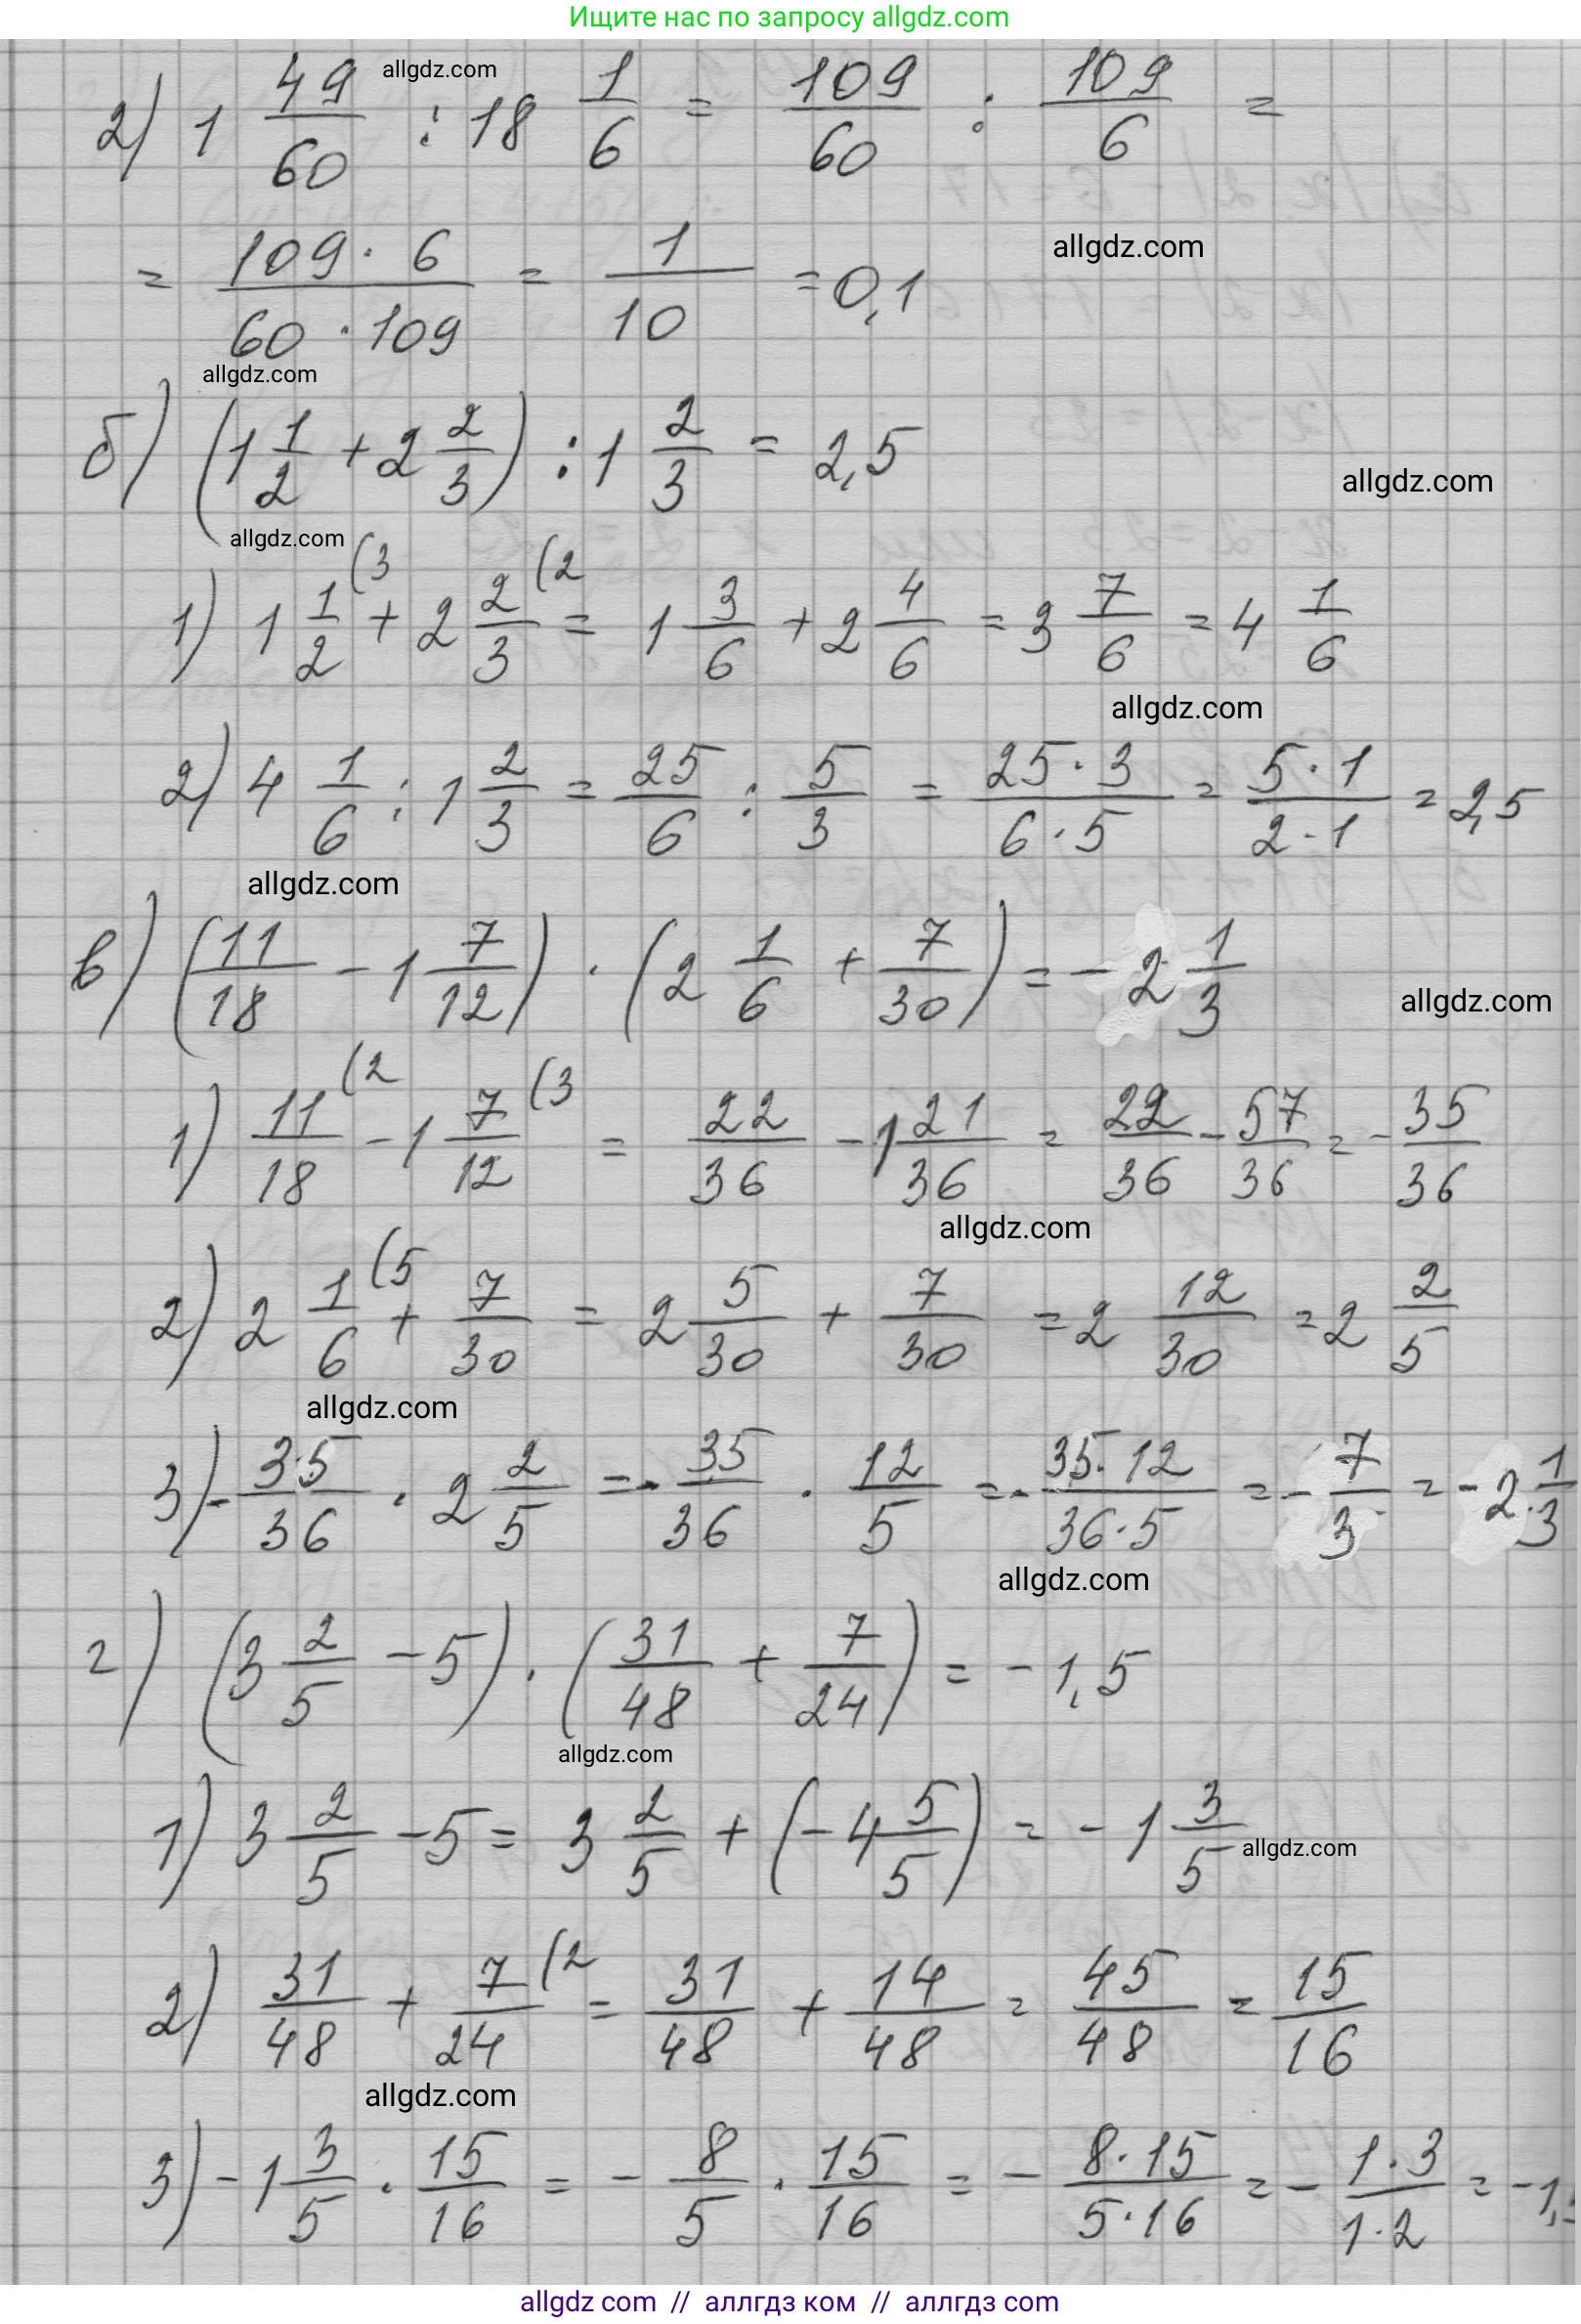 Ищите нас по запросу allgdz.com
allgdz.com
2) 1 49/60 : 18 1/6 = 109/60 : 109/6 =
= 109·6/60·109 = 1/10 = 0,1
allgdz.com
allgdz.com
б) (1 1/2 + 2 2/3) : 1 2/3 = 2,5
allgdz.com
allgdz.com
1) 1 1/2 (3 + 2 2/3 (2 = 1 3/6 + 2 4/6 = 3 7/6 = 4 1/6
allgdz.com
2) 4 1/6 : 1 2/3 = 25/6 : 5/3 = 25·3/6·5 = 5·1/2·1 = 2,5
allgdz.com
в) (11/18 - 1 7/12) · (2 1/6 + 7/30) = - 2 1/3
allgdz.com
1) 11/18 (2 - 1 7/12 (3 = 22/36 - 1 21/36 = 22/36 - 57/36 = - 35/36
allgdz.com
2) 2 1/6 (5 + 7/30 = 2 5/30 + 7/30 = 2 12/30 = 2 2/5
allgdz.com
3) - 35/36 · 2 2/5 = - 35/36 · 12/5 = - 35·12/36·5 = - 7/3 = - 2 1/3
allgdz.com
г) (3 2/5 - 5) · (31/48 + 7/24) = - 1,5
allgdz.com
1) 3 2/5 - 5 = 3 2/5 + (- 4 5/5) = - 1 3/5
allgdz.com
2) 31/48 + 7/24 (2 = 31/48 + 14/48 = 45/48 = 15/16
allgdz.com
3) - 1 3/5 · 15/16 = - 8/5 · 15/16 = - 8·15/5·16 = - 1·3/1·2 = - 1,5
allgdz com // аллгдз ком // аллгдз com